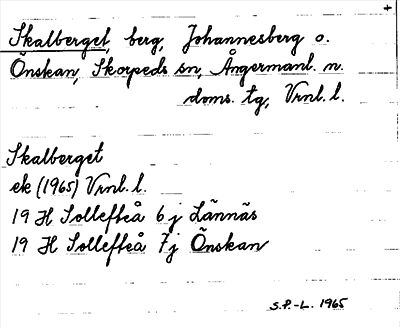 Skalberget, berg, Johannesberg o.
Önskan, Skorpeds sn, Ångermanl. n.
doms. tg, Vrnl. l.
Skalberget
ek (1965) Vrnl. l.
19 H Sollefteå 6 j Lännäs
19 H Sollefteå 7j Önskan
S.P.-L. 1965